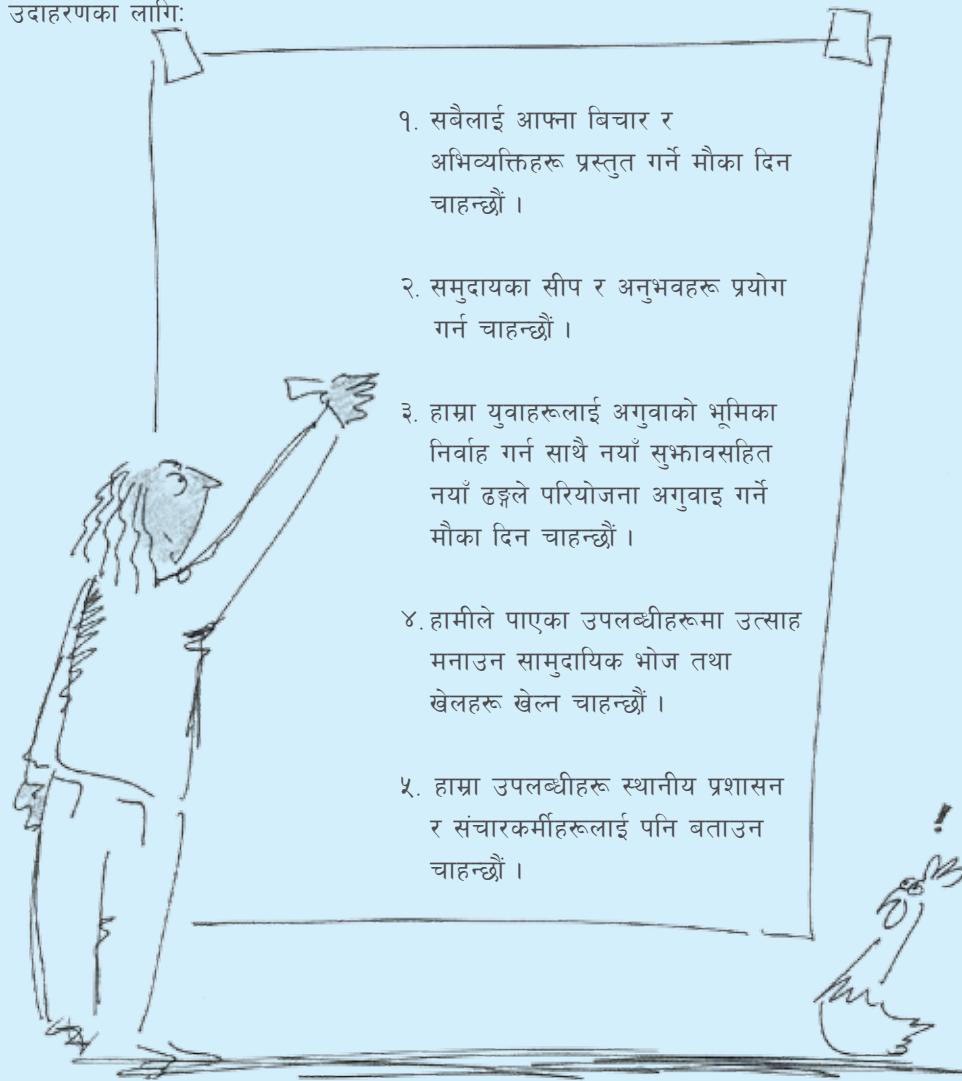 उदाहरणका लागि:
१. सबैलाई आफ्ना बिचार र
अभिव्यक्तिहरू प्रस्तुत गर्ने मौका दिन
चाहन्छौं ।
२. समुदायका सीप र अनुभवहरू प्रयोग
गर्न चाहन्छौं ।
३. हाम्रा युवाहरूलाई अगुवाको भूमिका
निर्वाह गर्न साथै नयाँ सुझावसहित
नयाँ ढङ्गले परियोजना अगुवाइ गर्ने
मौका दिन चाहन्छौं ।
४. हामीले पाएका उपलब्धीहरूमा उत्साह
मनाउन सामुदायिक भोज तथा
खेलहरू खेल्न चाहन्छौं ।
५. हाम्रा उपलब्धीहरू स्थानीय प्रशासन
र संचारकर्मीहरूलाई पनि बताउन
चाहन्छौं ।
!